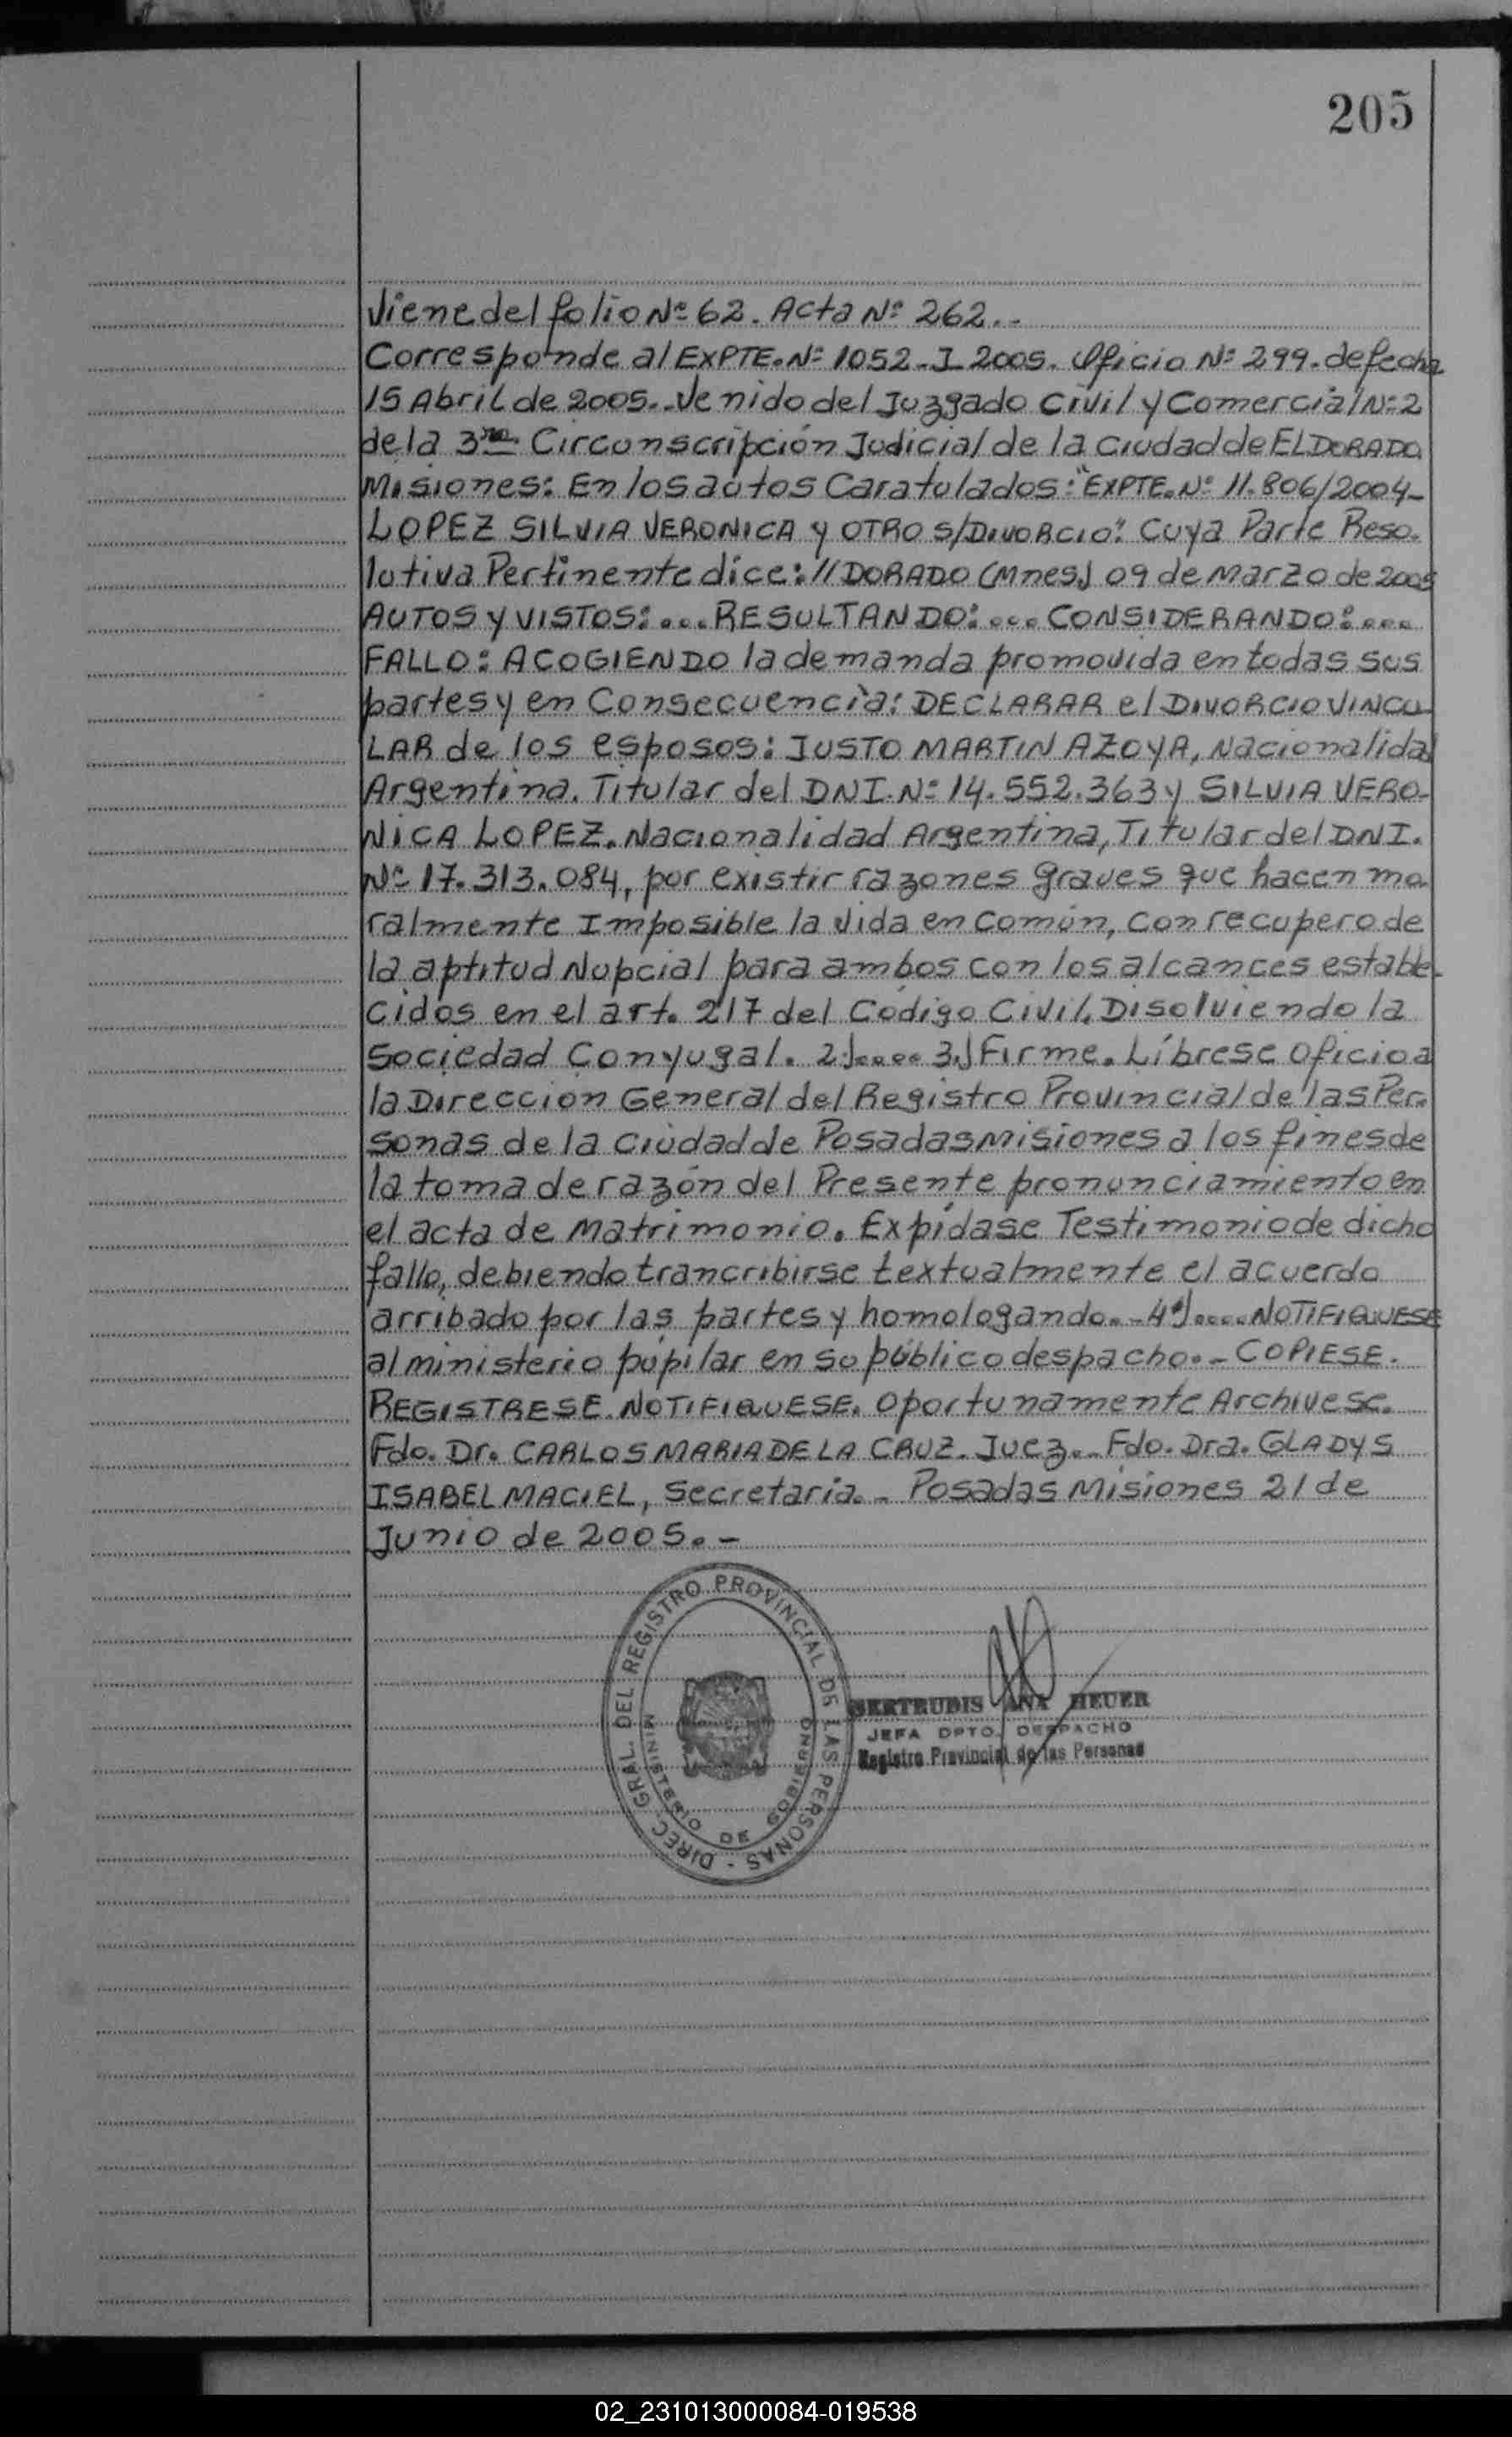 205
Viene del folio Nº 62. Acta Nº 262..-
Corresponde al EXPTE. Nº 1052-I-2005. Oficio Nº 299. de fecha
15 Abril de 2005.. Venido del Juzgado Civil y Comercial Nº 2
de la 3ra. Circunscripción Judicial de la Ciudad de ELDORADO
Misiones: En los autos Caratulados: "EXPTE. Nº 11.806/2004-
LOPEZ SILVIA VERONICA y OTRO S/DIVORCIO". Cuya Parte Reso-
lutiva Pertinente dice: // DORADO (Mnes) 09 de Marzo de 2005
AUTOS y VISTOS:... RESULTANDO:... CONSIDERANDO:...
FALLO: ACOGIENDO la demanda promovida en todas sus
partes y en Consecuencia: DECLARAR el DIVORCIO VINCU-
LAR de los esposos: JUSTO MARTIN AZOYA, Nacionalidad
Argentina. Titular del DNI. Nº 14.552.363 y SILVIA VERO-
NICA LOPEZ. Nacionalidad Argentina, Titular del DNI.
Nº 17.313.084, por existir razones graves que hacen mo-
ralmente Imposible la vida en Común, con recupero de
la aptitud Nupcial para ambos con los alcances estable-
cidos en el art. 217 del Código Civil. Disolviendo la
Sociedad Conyugal. 2.)..... 3.) Firme. Líbrese Oficio a
la Dirección General del Registro Provincial de las Per-
sonas de la Ciudad de Posadas Misiones a los fines de
la toma de razón del Presente pronunciamiento en
el acta de Matrimonio. Expídase Testimonio de dicho
fallo, debiendo trancribirse textualmente el acuerdo
arribado por las partes y homologando..-4º).... NOTIFIQUESE
al ministerio pupilar en su público despacho..- COPIESE.
REGISTRESE. NOTIFIQUESE. Oportunamente Archivese.
Fdo. Dr. CARLOS MARIA DE LA CRUZ. Juez.- Fdo. Dra. GLADYS
ISABEL MACIEL, Secretaria.- Posadas Misiones 21 de
Junio de 2005.-
DIREC. GRAL. DEL REGISTRO PROVINCIAL DE LAS PERSONAS -
MINISTERIO DE GOBIERNO
GERTRUDIS ANA HEUER
JEFA DPTO. DESPACHO
Registro Provincial de las Personas
02_231013000084-019538